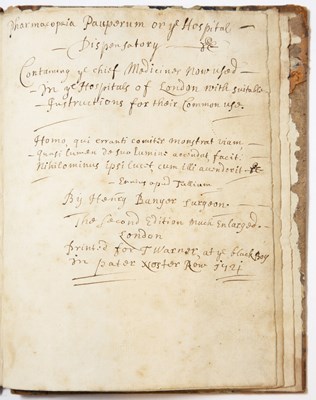 Pharmacopœia Pauperum or yᵉ Hospital
Dispensatory
Containing yᵉ chief Medicines Now used
In yᵉ Hospitals of London with suitable
Instructions for their Common use.
Homo, qui erranti comiter monstrat viam
Quasi lumen de suo lumine accendat facit:
Nihilominus ipsi lucet, cum illi accenderit
Ennius apud Tullium
By Henry Banyer Surgeon.
The Second Edition Much Enlarged
London
Printed for T Warner at yᵉ black Boy
in pater Noster Row 1721